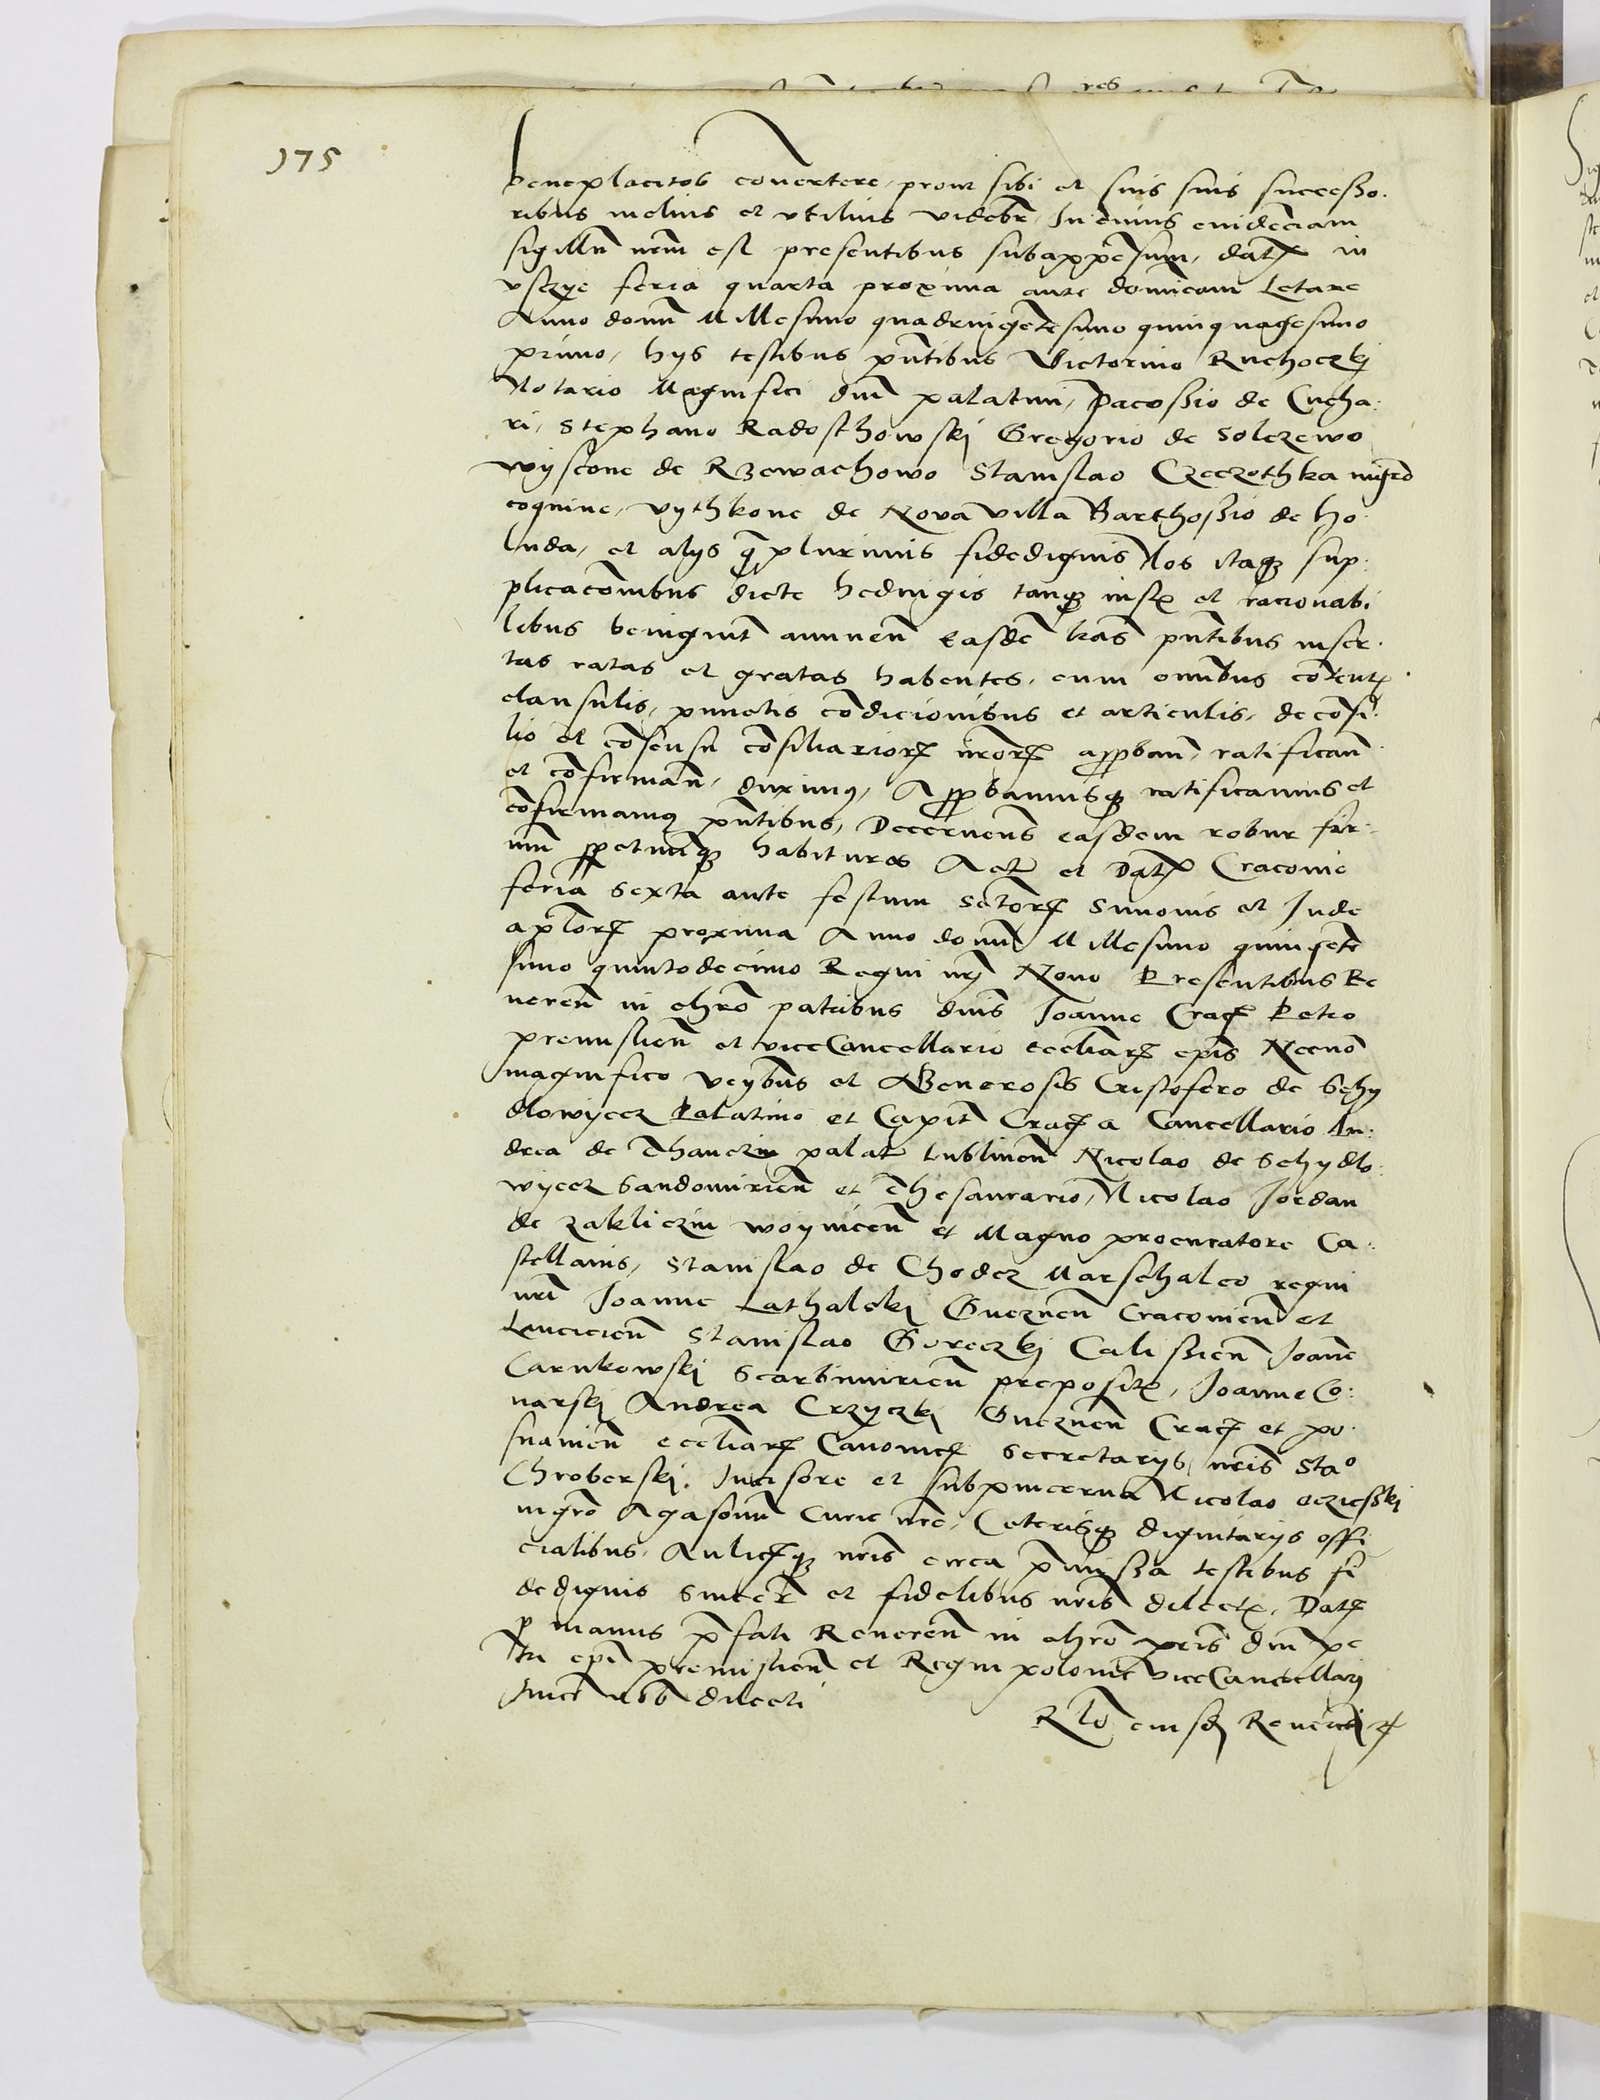 175
beneplacitos cōvertere, prout sibi et suis suis successo.
ribus melius et utilius videbr̄. In cuius evidēciam
sigillū nr̄m est presentibus subappēsum, datꝝ in
vschye feria quarta proxima ante dominicam Letare
Anno domini Millesimo quadringētesimo quinquagesimo
primo, hys testibus pn̄tibus Victorino Ruchoczkj
Notario Magnifici dnī palatini, Pacossio de Cucha.
ri, Stephano Radosthowskj Gregorio de Solczewo
wyscone de Rzewachowo Stanislao Czeczothka mgrō
coquine, vythkone de Nova villa Barthossio de Ho.
luda, et alys q̄ plurimis fidedignis Nos itaqꝫ sup.
plicacōnibus dicte hedvigis tanqꝫ iustꝭ et racionabi
libus benignit̄ annuen̄ easdē lr̄as pn̄tibus inser.
tas ratas et gratas habentes, cum omībus cōtentꝭ.
clausulis, punctis cōdicionibus et articulis, de cōsi.
lio et cōsensu cōsiliariorꝝ nr̄orꝝ approban̄, ratifican̄
et cōfirman̄, duximꝰ, Approbamusqꝫ ratificamus et
cōfirmamꝰ pn̄tibus, Decernens easdem robur fir.
mū ꝑpetuumqꝫ habituras Actū et Datꝝ Cracovie
feria Sexta ante festum Sctōrꝝ Simonis et Jude
aplōrꝝ proxima Anno domī Millesimo quingēte
simo quintodecimo Regni nrj Nono Presentibus Re
veren̄ in chrō patribus dnīs Joanne Cracꝭ Petro
premislien̄ et viceCancellario ecclīarꝝ epīs Necnō
magnifico veybus et Generosis Cristofero de Schy
dlowyecz Palatino et Capitꝭ Cracꝭ a Cancellario An.
drea de Thanczin palatꝭ lublinen̄ Nicolao de Schydlo.
wyecz Sandomirien̄ et Thesaurario, Nicolao Jordan
de zakliczin woynicen̄ et Magno procuratore Ca.
stellanis, Stanislao de Chodcz Marschalco regni
nrī Joanne Lathalskj Gneznen̄ Cracovien̄ et
Lencicien̄ Stanislao Goreczkj Calissien̄ Joanē
Carnkowskj Scarbimirien̄ prepositꝭ, Joanne Co.
narskj Andrea Crzyczkj Gneznen̄ Cracꝭ et po.
snanien̄ ecclīarꝝ Canonicꝭ Secretarijs nrīs Staᵒ
Chroberskj. Incisore et subpincerna Nicolao oczieskj
mgrō Agasonū Curie nrē, Ceterisqꝫ dignitarijs offi
cialibus, Aulicꝭqꝫ nrīs circa p̄missa testibus fi
dedignis Sincerꝭ et fidelibus nrīs dilectꝭ, Datꝝ
ꝑ manus p̄fati Reveren̄ in chrō prīs dnī pe
tri epī premislien̄ et Regni polonie viceCancellarij
sincē nob̄ dilecti
Rlō eiusdꝫ Reverendi